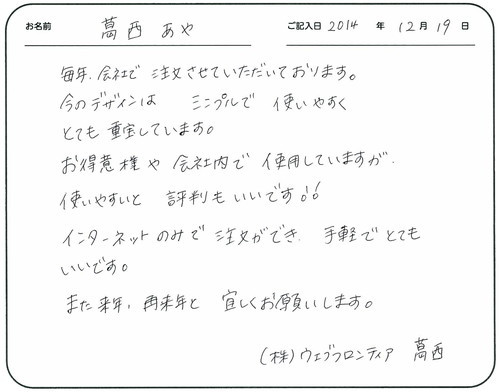 お名前 葛西 あや ご記入日 2014 年 12 月 19 日
毎年、会社で 注文させていただいております。
今のデザインは ミニプルで 使いやすく
とても 重宝しています。
お得意様や 会社内で 使用していますが、
使いやすいと 評判も いいです!!
インターネットのみで 注文ができ、手軽で とても
いいです。
また来年、再来年と 宜しくお願いします。
(株)ウェブフロンティア 葛西